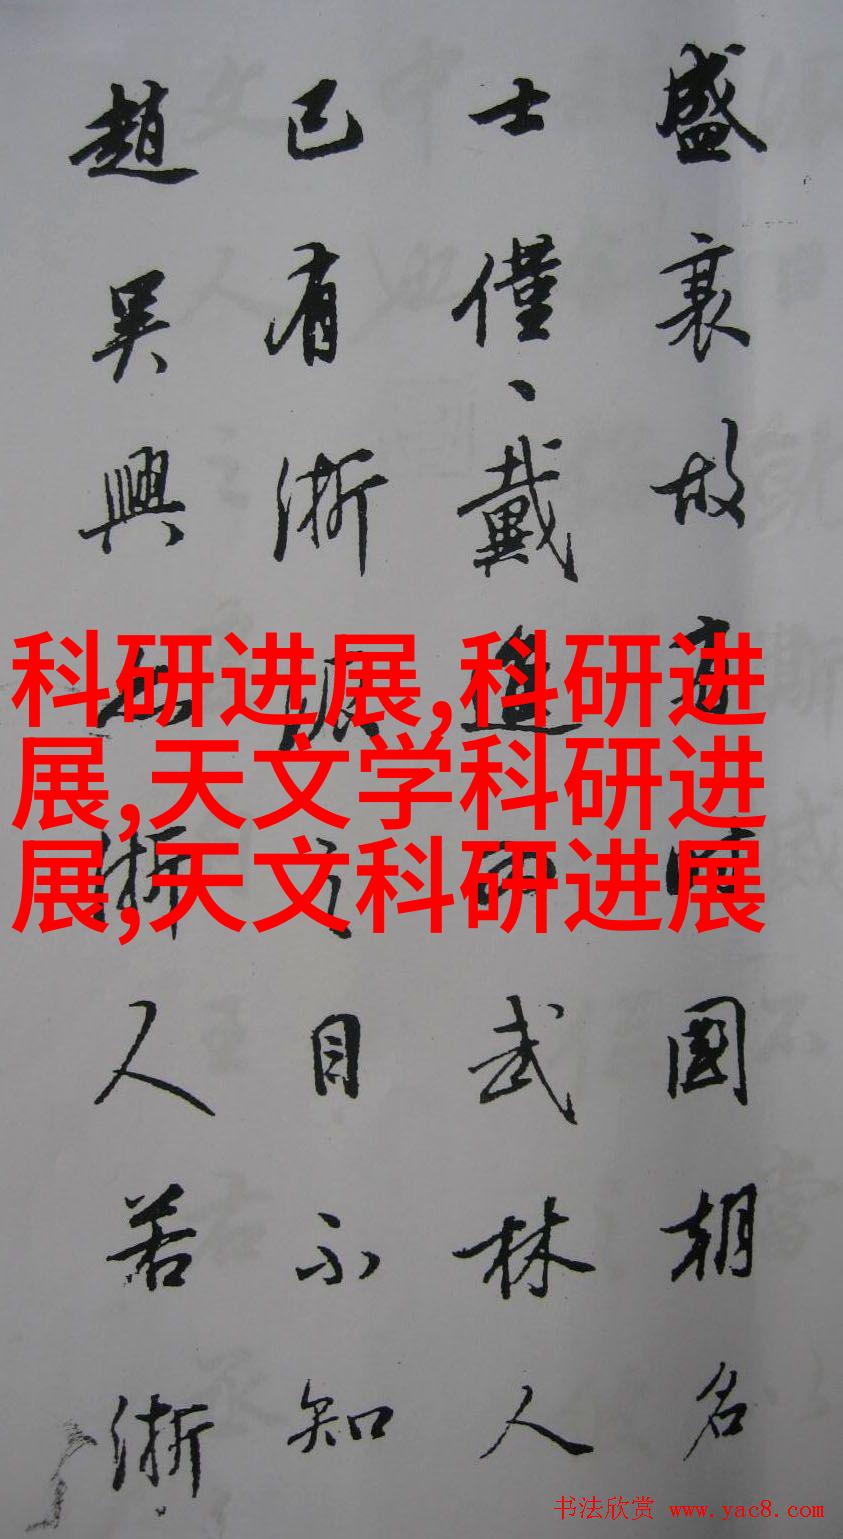 盛衰故國朝名
士僅、戴進武林人
已有浙派之目不知
趙吳興亦浙人若浙
科研进展,科研进
展,天文学科研进
展,天文科研进展
书法欣赏 www.yac8.com